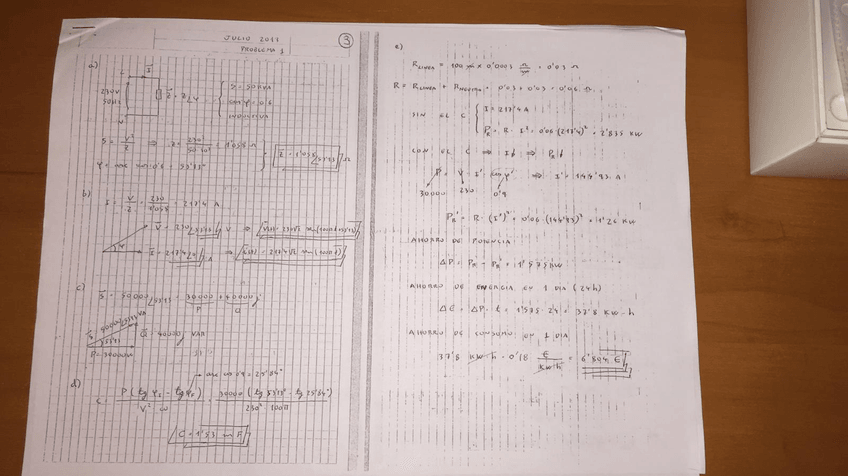 JULIO 2011
PROBLEMA 1
3
a)
I
230V
50Hz
Z = Z∠φ
S = 50 KVA
cos φ = 0'6
INDUCTIVA
S = V²/Z ⇒ Z = 230²/50·10³ = 1'058 Ω
Z = 1'058∠53'13 Ω
φ = arc cos 0'6 = 53'13°
b)
I = V/Z = 230/1'058 = 217'4 A
V = 230∠53'13 V ⇒ v(t) = 230√2 sen (100πt + 53'13)
I = 217'4∠0 A ⇒ i(t) = 217'4√2 sen (100πt)
c)
S = 50000∠53'13 = 30000 + 40000j
P Q
S = 50000∠53'13 VA
Q = 40000j VAR
53'13
P = 30000W
d)
arc cos 0'9 = 25'84°
C = P (tg φi - tg φf) / V² ω = 30000 (tg 53'13° - tg 25'84°) / 230² · 100π
C = 1'53 m F
e)
R LINEA = 100 m × 0'0003 Ω/m = 0'03 Ω
R = R LINEA + = 0'03 + 0'03 = 0'06 Ω
SIN EL C { I = 217'4 A
PR = R · I² = 0'06 · (217'4)² = 2'835 KW
CON EL C ⇒ I↓ ⇒ PR↓
P = V · I' · cos φ' ⇒ I' = 144'93 A
30000 230 0'9
PR' = R · (I')² = 0'06 · (144'93)² = 1'26 KW
AHORRO DE POTENCIA
ΔP = PR - PR' = 1'575 KW
AHORRO DE ENERGIA EN 1 DIA (24h)
ΔE = ΔP · t = 1'575 · 24 = 37'8 KW·h
AHORRO DE CONSUMO EN 1 DIA
37'8 KW·h · 0'18 €/KW·h = 6'804 €